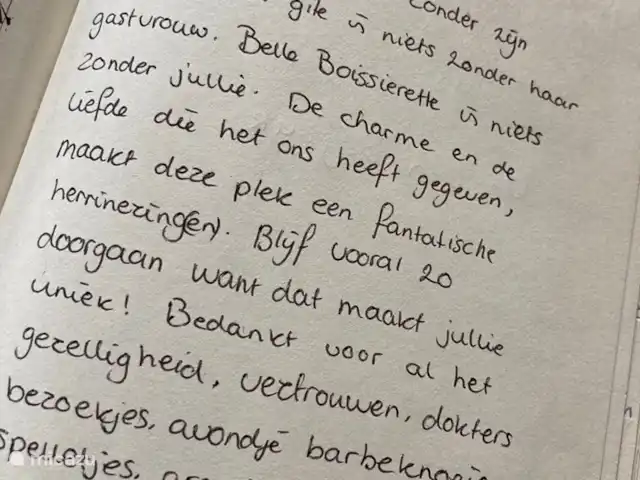 zonder zijn
gite is niets zonder haar
gastvrouw. Belle Boissierette is niets
zonder jullie. De charme en de
liefde die het ons heeft gegeven,
maakt deze plek een fantatische
herrinering(en). Blijf vooral zo
doorgaan want dat maakt jullie
uniek! Bedankt voor al het
gezelligheid, vertrouwen, dokters
bezoekjes, avondje
spelletjes,
micazu